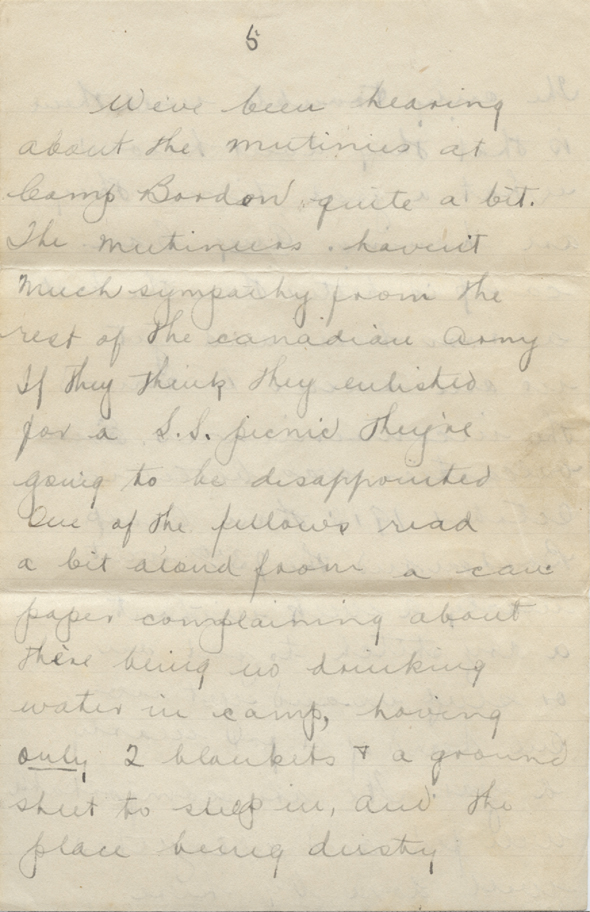 5
We've been hearing
about the mutinies at
Camp Bordon quite a bit.
The mutineers haven't
much sympathy from the
rest of the canadian Army
If they think they enlisted
for a S.S. picnic they're
going to be disappointed
One of the fellows read
a bit aloud from a can
paper complaining about
there being no drinking
water in camp, having
only 2 blankets & a ground
sheet to sleep in, and the
place being dusty